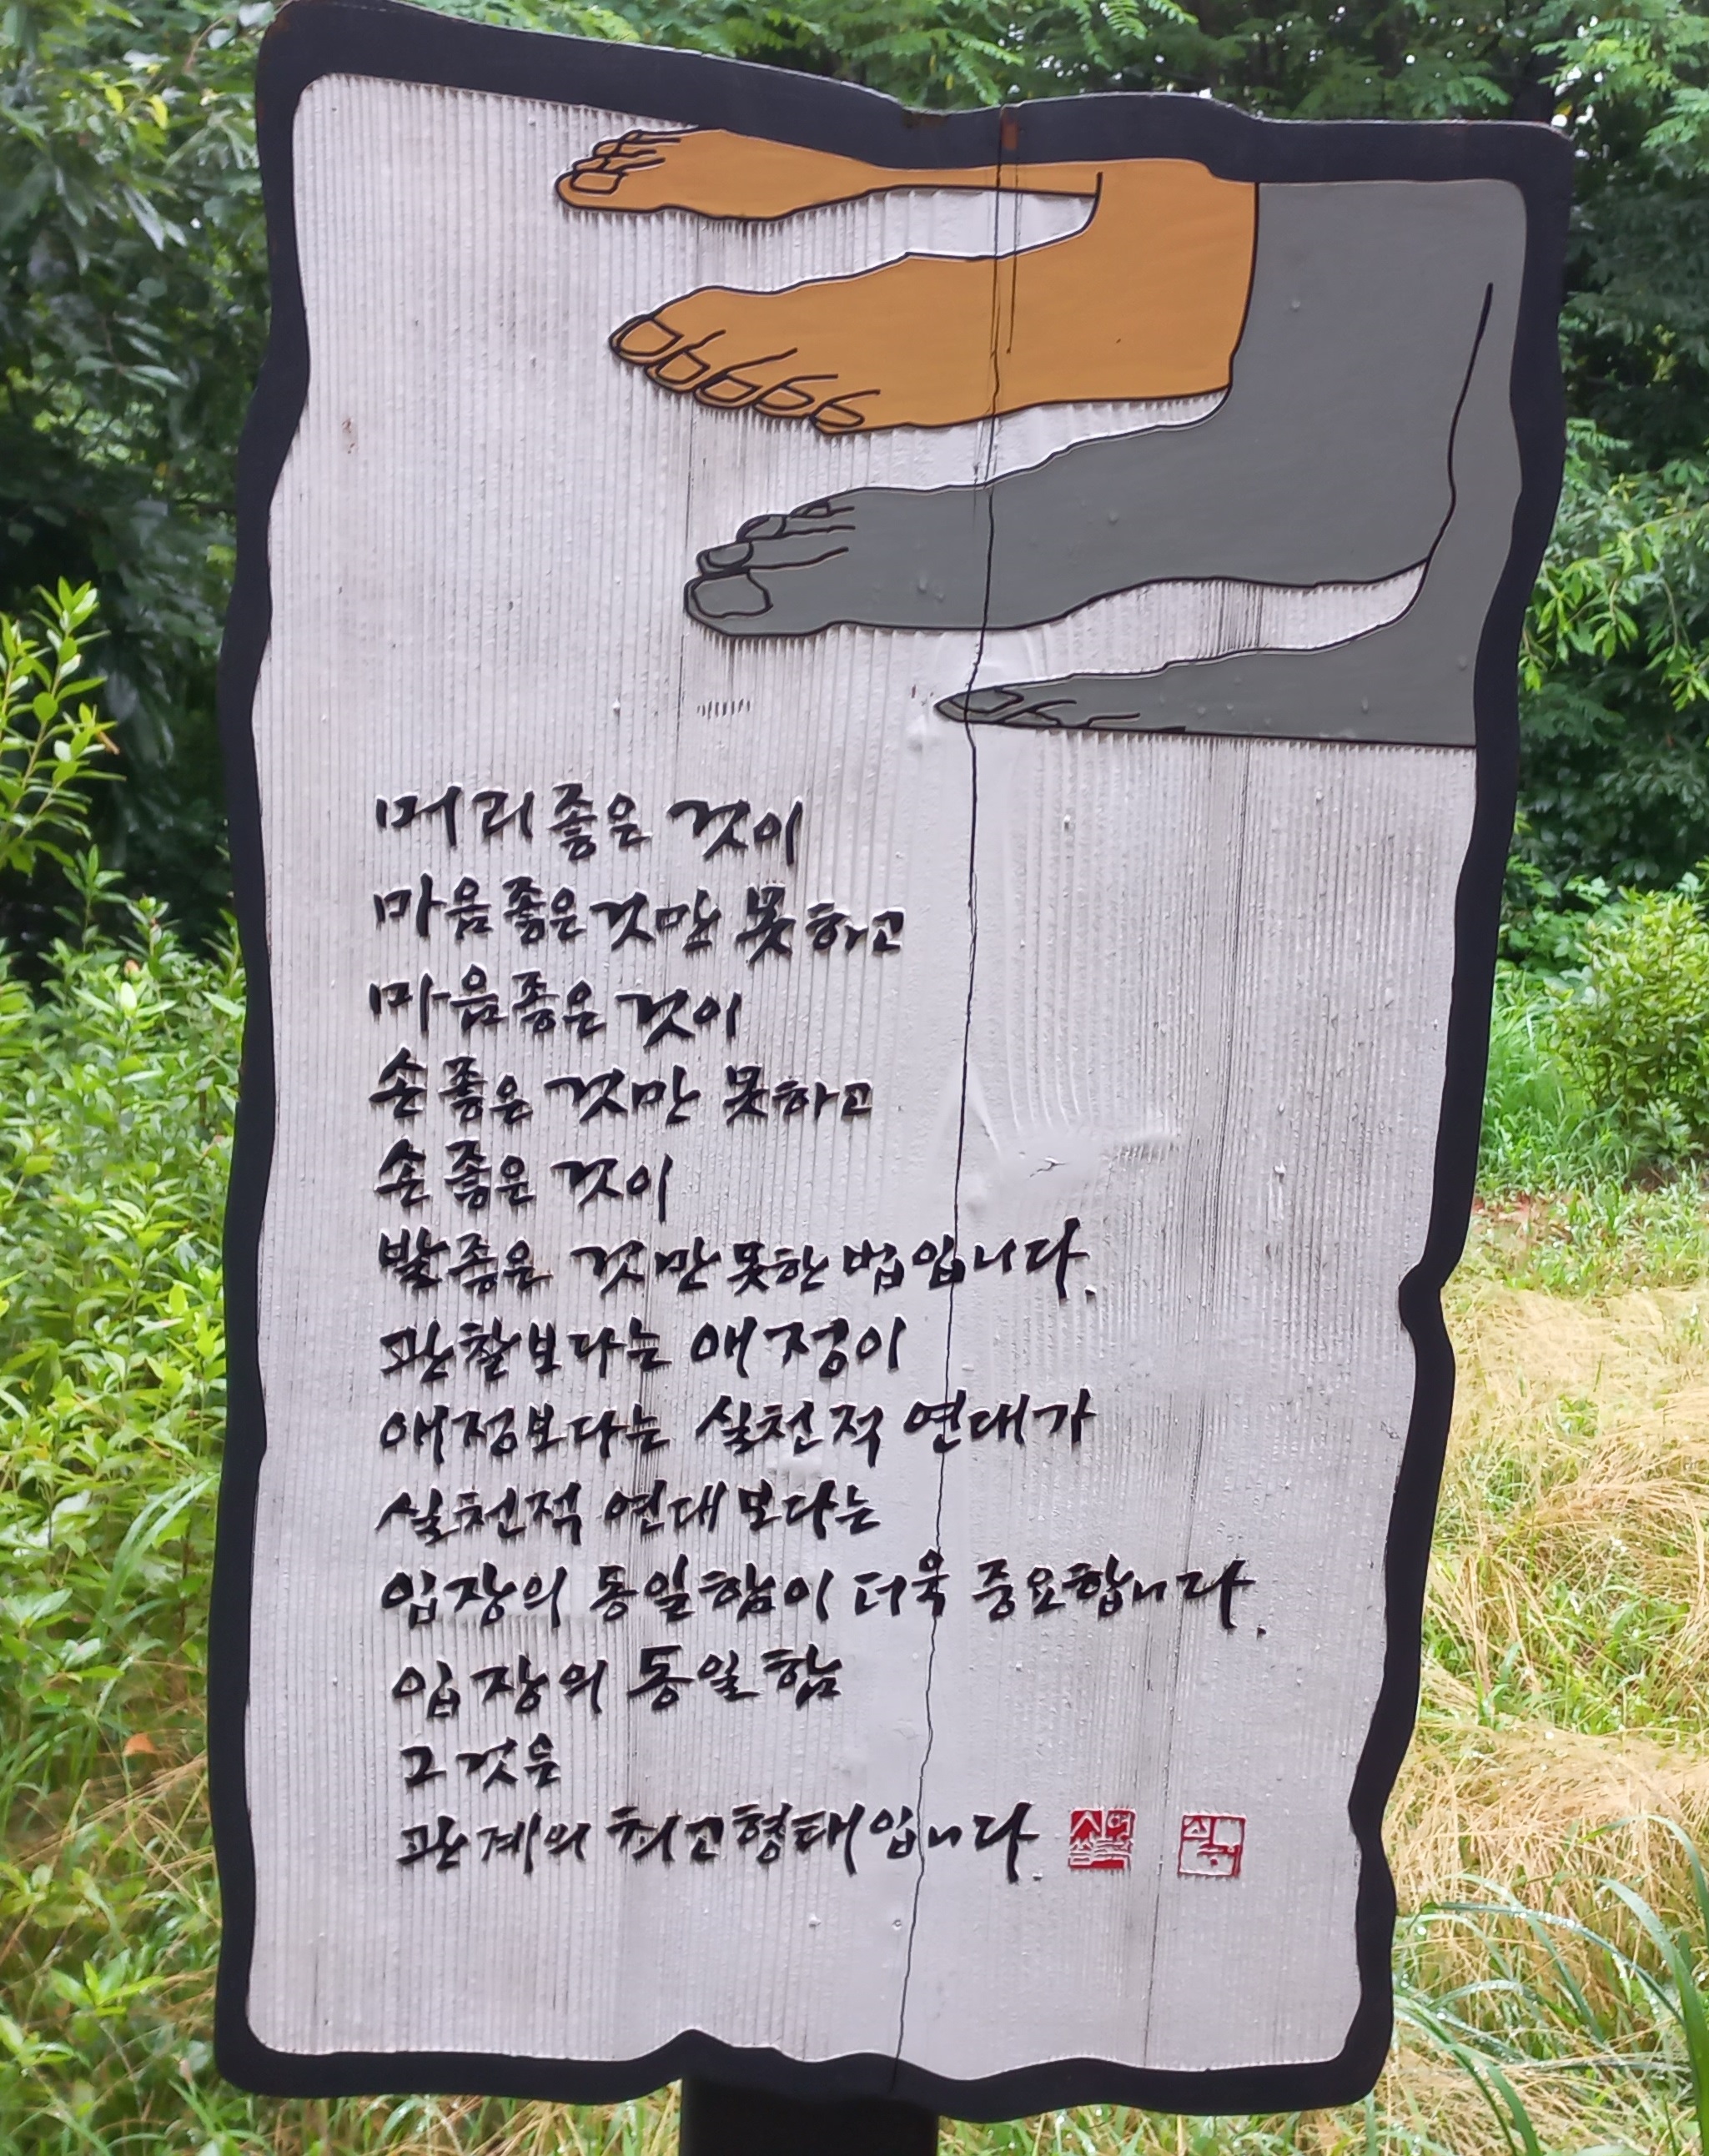 머리 좋은 것이
마음 좋은 것만 못하고
마음 좋은 것이
손 좋은 것만 못하고
손 좋은 것이
발 좋은 것만 못한 법입니다.
관찰보다는 애정이
애정보다는 실천적 연대가
실천적 연대보다는
입장의 동일함이 더욱 중요합니다.
입장의 동일함
그것은
관계의 최고형태입니다.